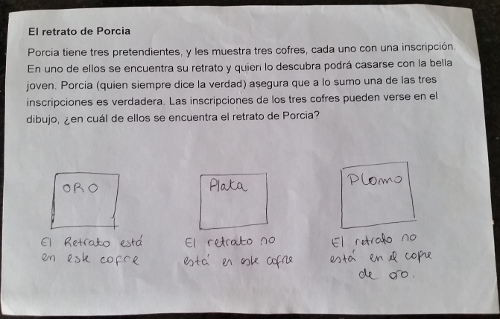 El retrato de Porcia
Porcia tiene tres pretendientes, y les muestra tres cofres, cada uno con una inscripción.
En uno de ellos se encuentra su retrato y quien lo descubra podrá casarse con la bella
joven. Porcia (quien siempre dice la verdad) asegura que a lo sumo una de las tres
inscripciones es verdadera. Las inscripciones de los tres cofres pueden verse en el
dibujo, ¿en cuál de ellos se encuentra el retrato de Porcia?
ORO
El Retrato está
en este cofre
Plata
El retrato no
está en este cofre
Plomo
El retrato no
está en el cofre
de oro.